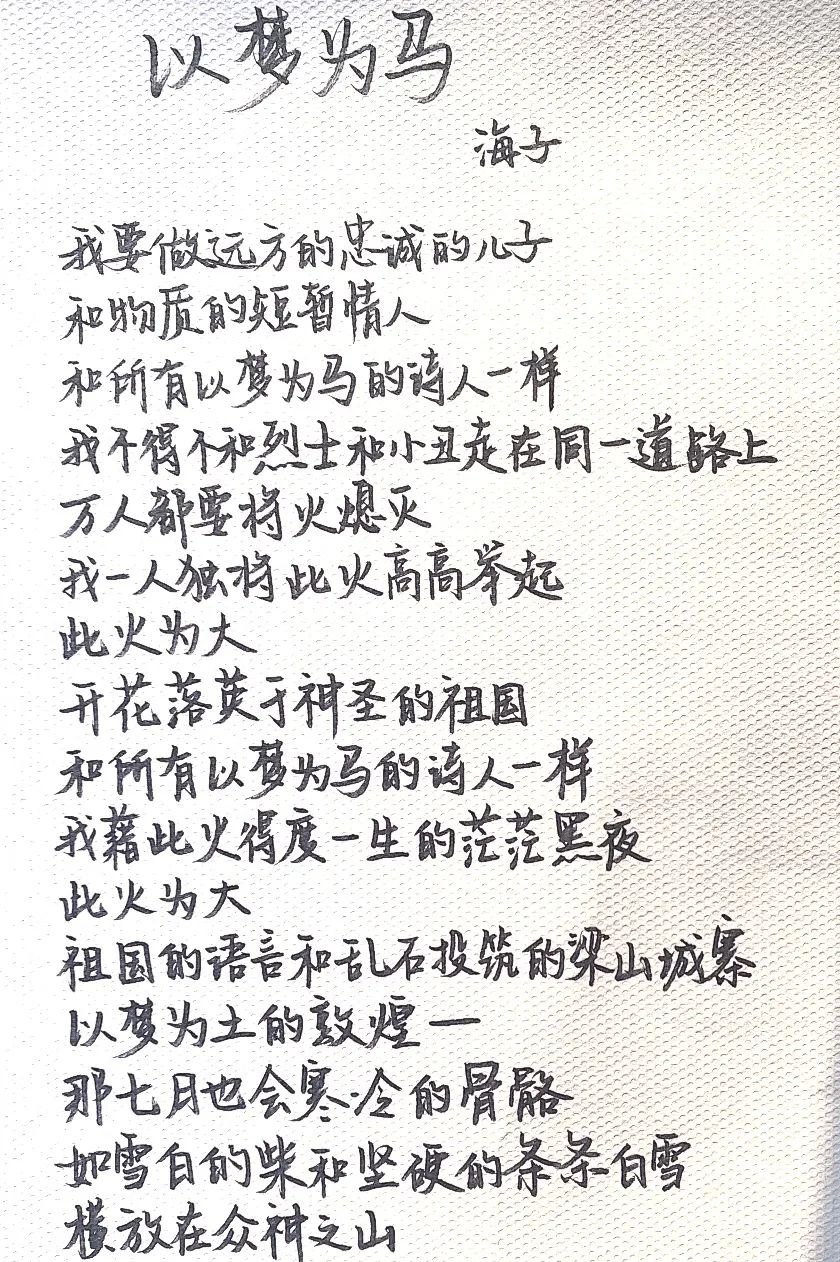 以梦为马
海子
我要做远方的忠诚的儿子
和物质的短暂情人
和所有以梦为马的诗人一样
我不得不和烈士和小丑走在同一道路上
万人都要将火熄灭
我一人独将此火高高举起
此火为大
开花落英于神圣的祖国
和所有以梦为马的诗人一样
我藉此火得度一生的茫茫黑夜
此火为大
祖国的语言和乱石投筑的梁山城寨
以梦为土的敦煌一
那七日也会寒冷的骨骼
如雪白的柴和坚硬的条条白雪
横放在众神之山